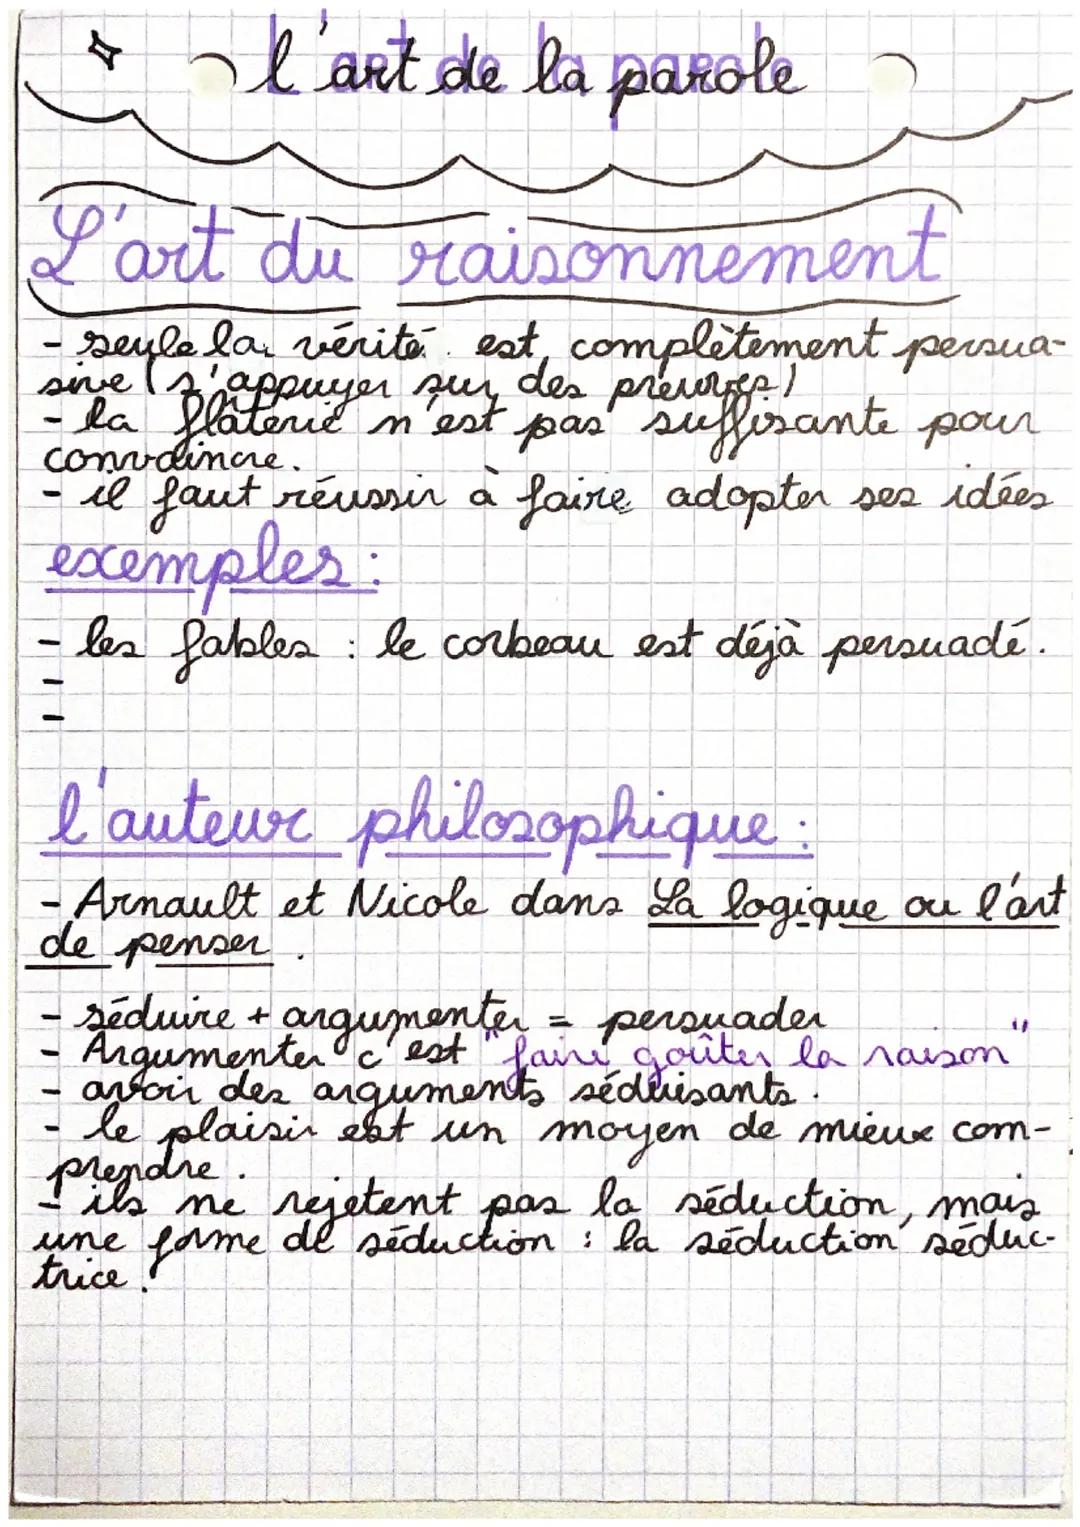 l'art de la parole
L'art du raisonnement
- seule la vérité est complètement persua-
sive (s'appuyer sur des preuves)
- la flâterie n'est pas suffisante pour
convaincre.
- il faut réussir à faire adopter ses idées
exemples :
- les fables : le corbeau est déjà persuadé.
-
-
l'auteur philosophique :
- Arnault et Nicole dans La logique ou l'art
de penser.
- séduire + argumenter = persuader
- Argumenter c'est "faire goûter la raison"
- avoir des arguments séduisants.
- le plaisir est un moyen de mieux com-
prendre.
- ils ne rejetent pas la séduction, mais
une forme de séduction : la séduction séduc-
trice.